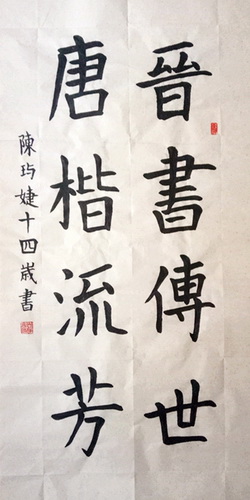 晉書傳世
唐楷流芳
陳玙婕十四歲書